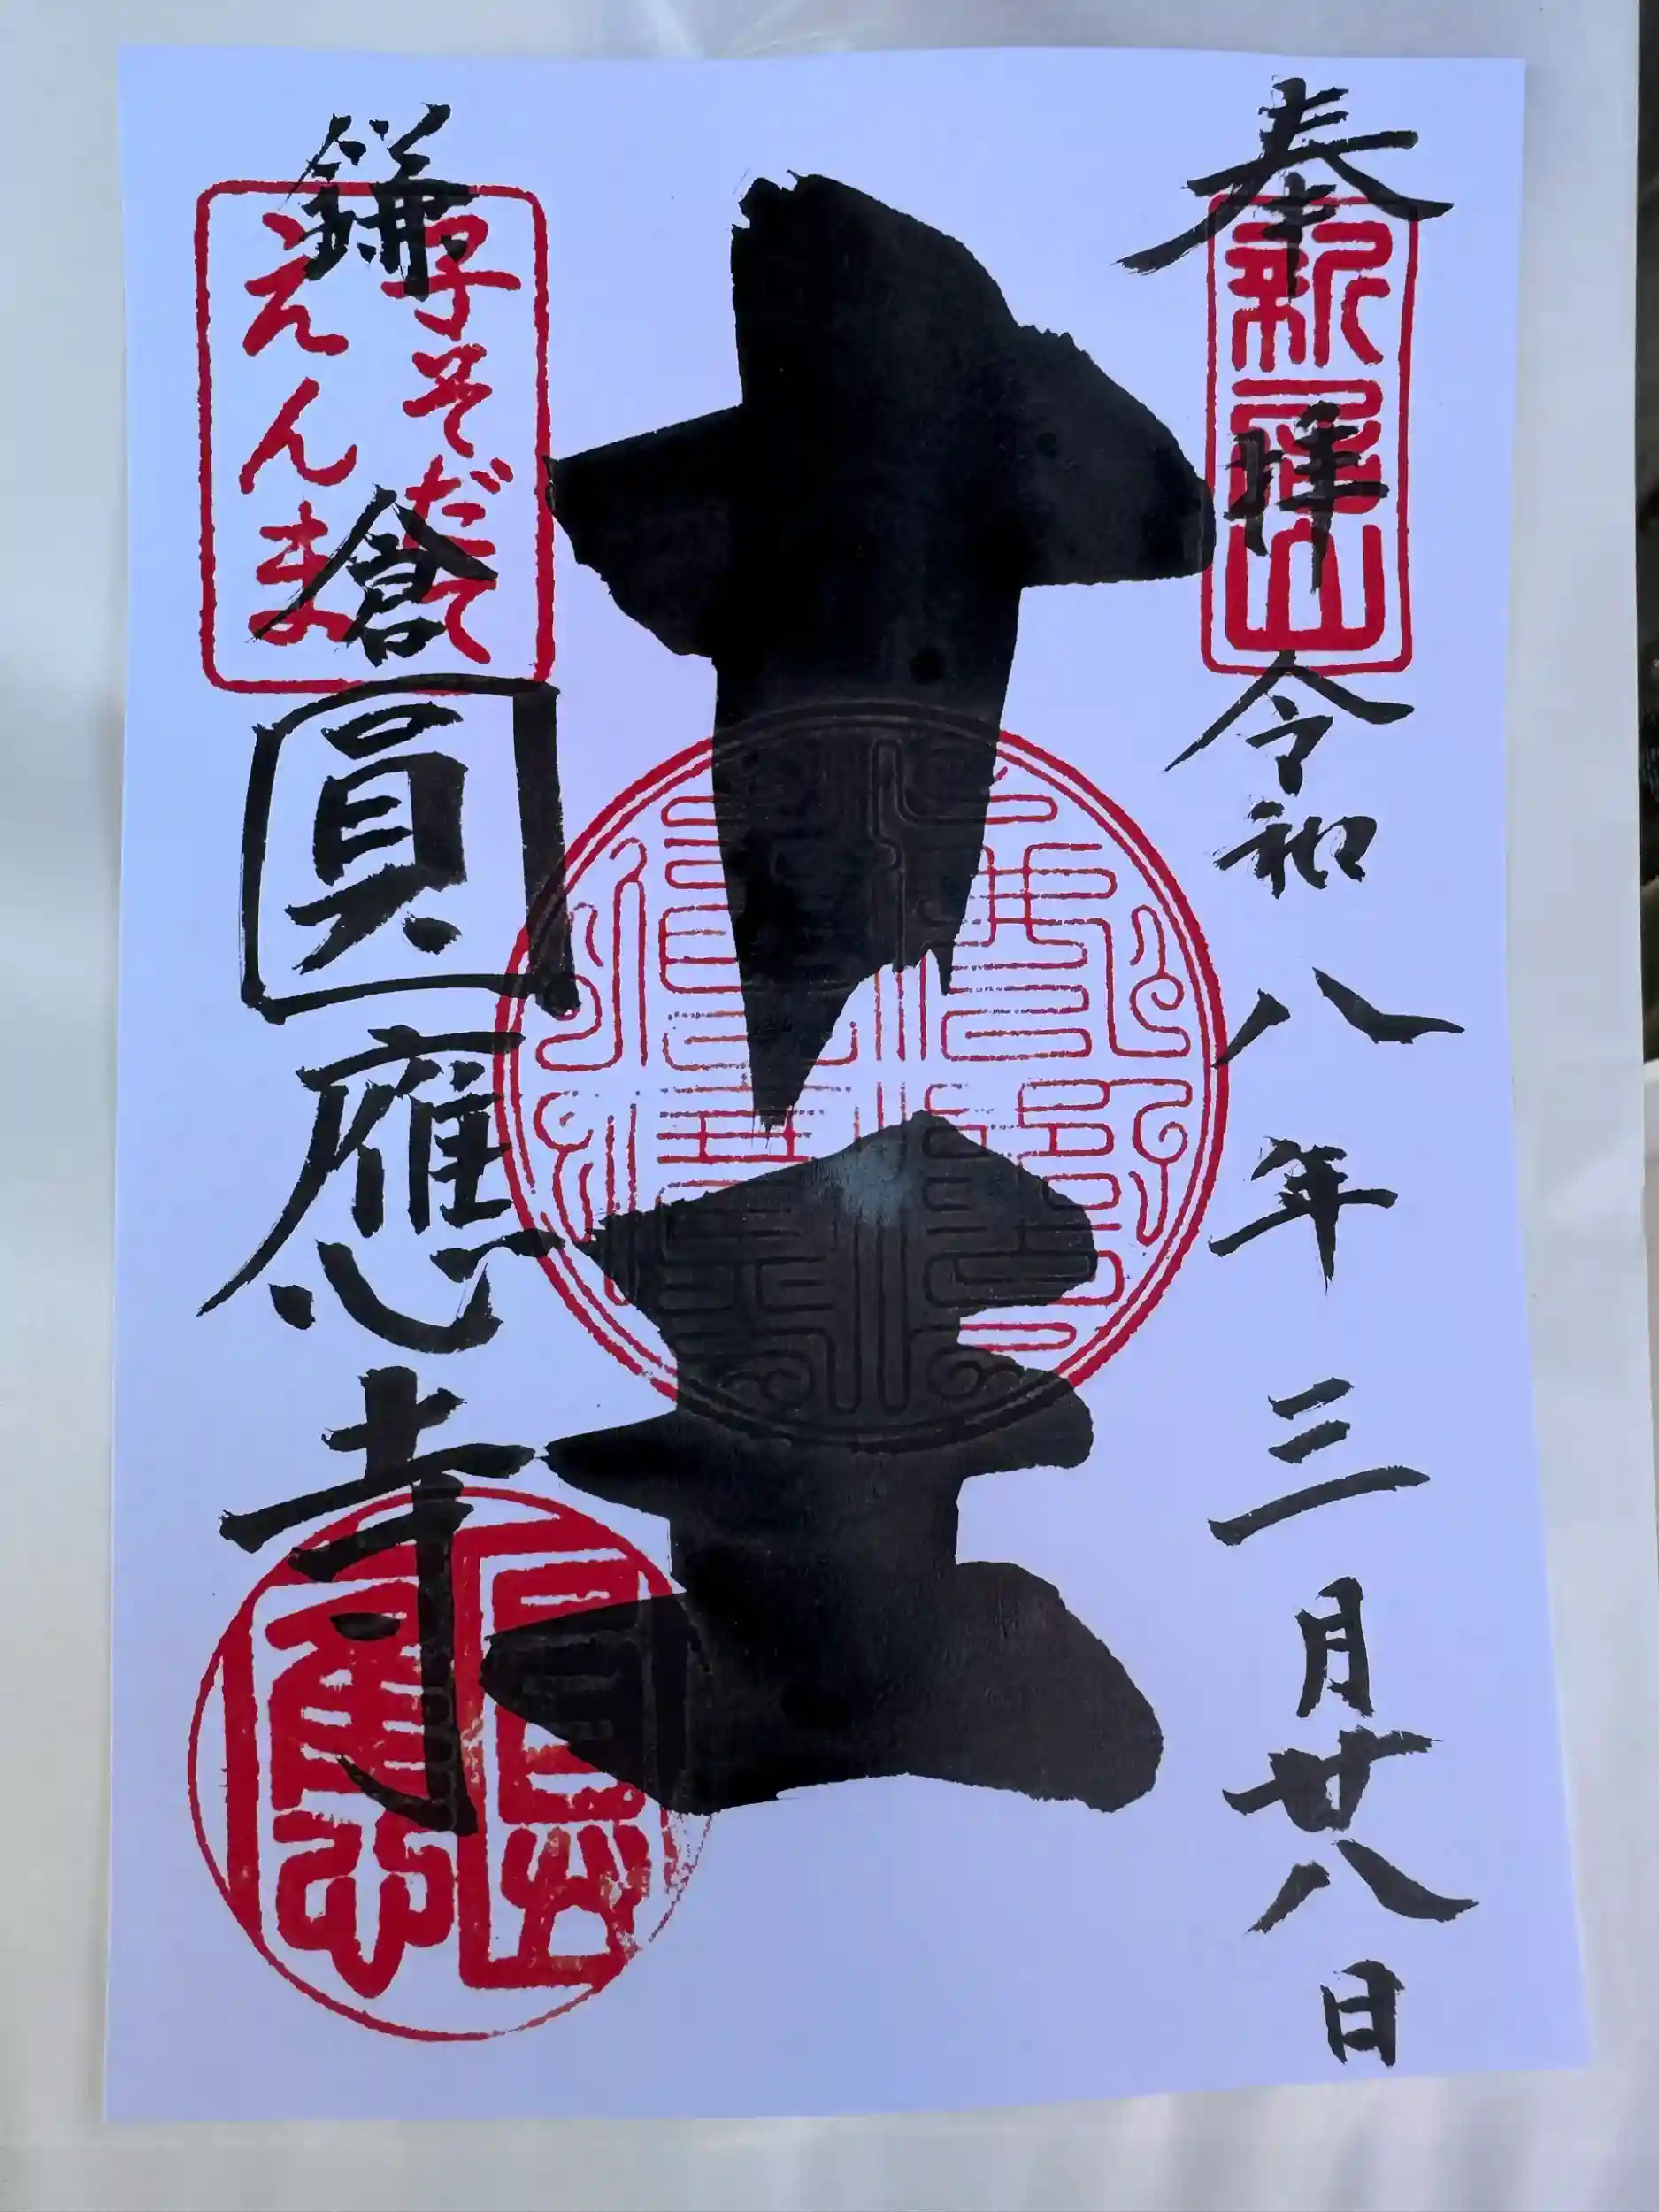 奉拝
令和八年三月廿八日
新居山
十王
子そだて
えんま
鎌倉
圓應寺